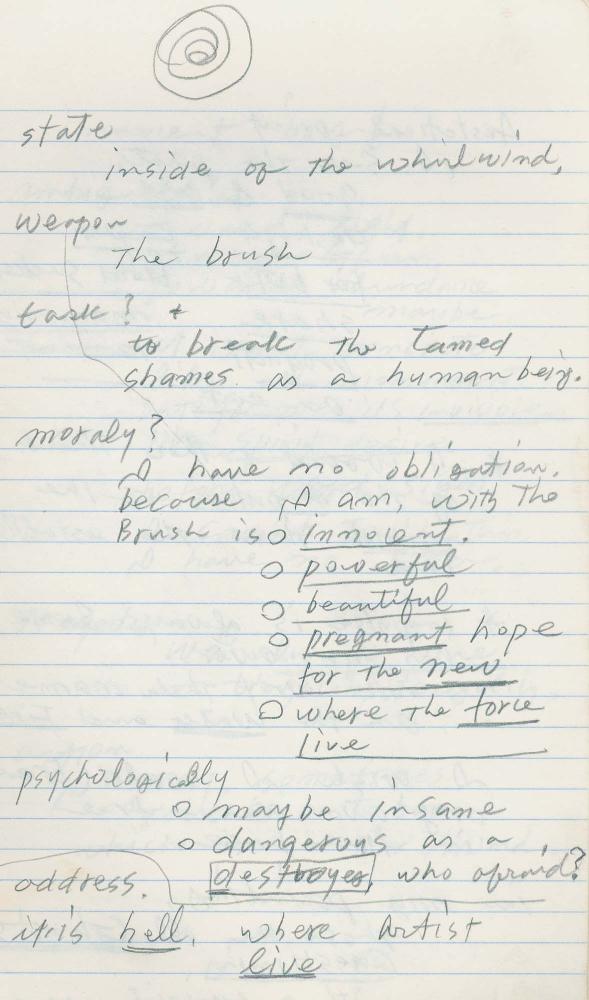 state
inside of the whirlwind,
weapon
The brush
task? *
to break the Tamed
shames as a human being.
moraly?
I have no obligation.
because I am, with The
Brush is o innocent.
o powerful
o beautiful
o pregnant hope
for the new
o where the force
live
psychologically
o maybe insane
o dangerous as a
destroyer, who afraid?
address.
it is hell, where Artist
live